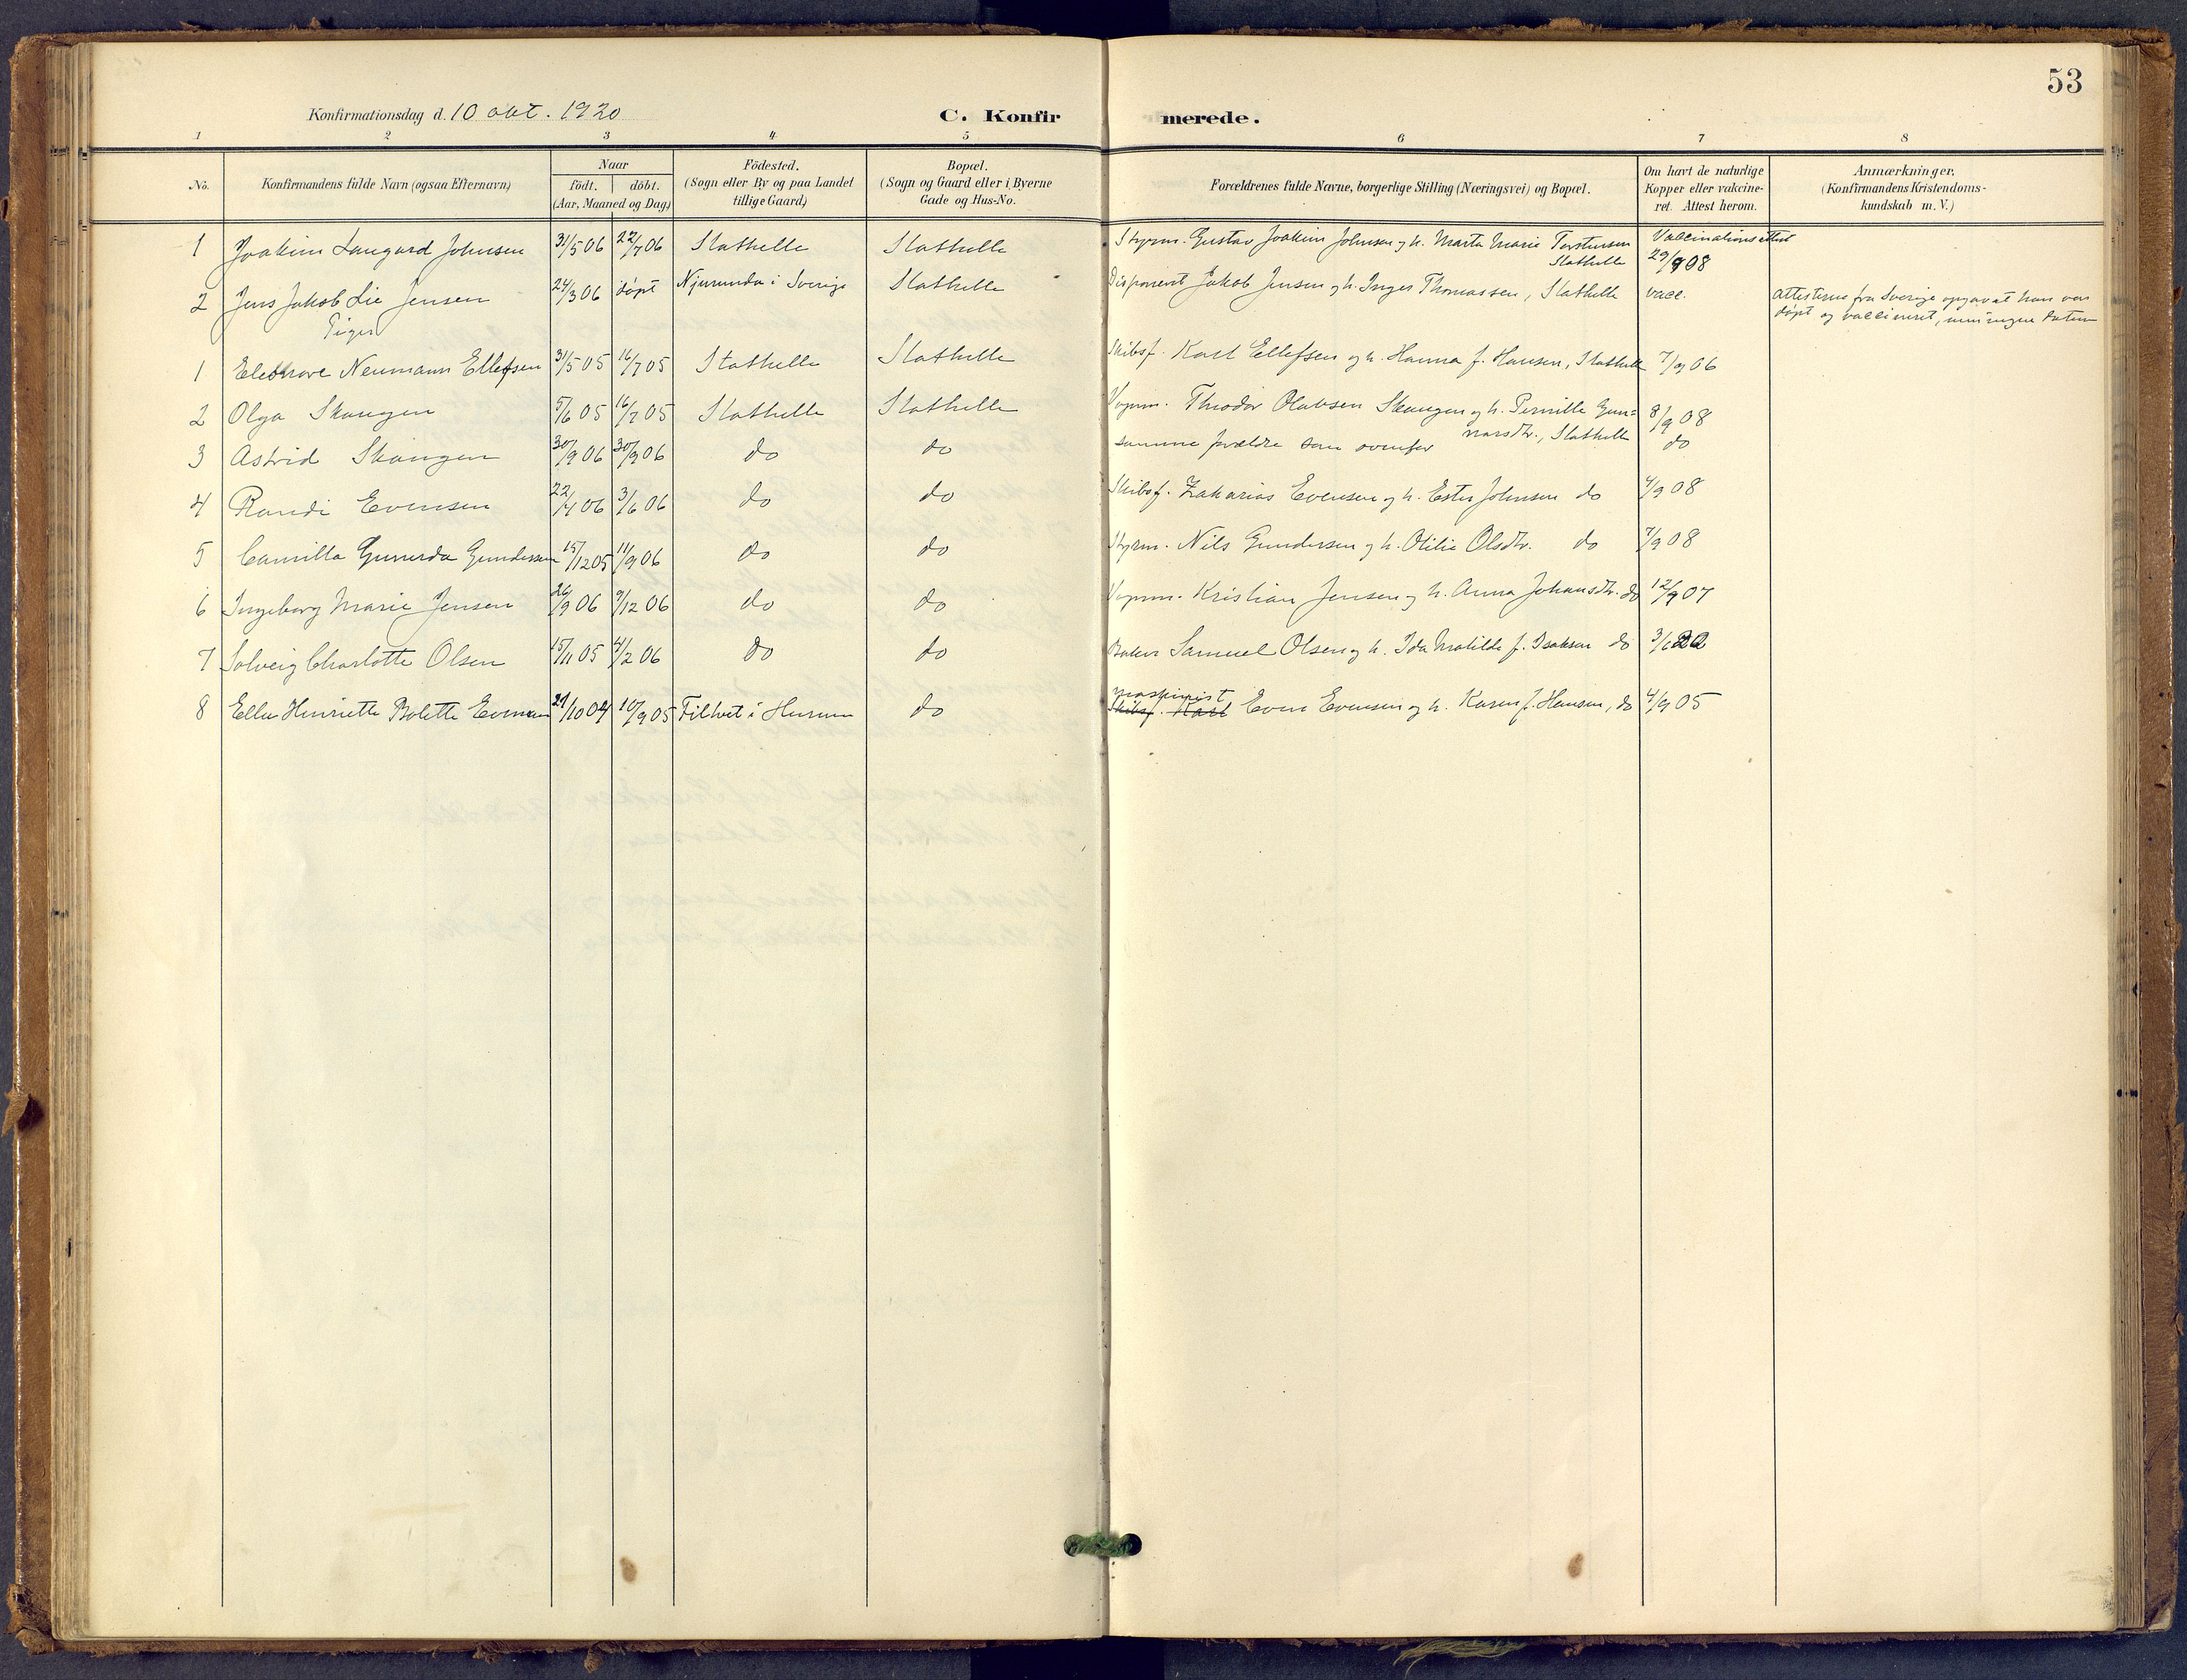 53
Konfirmationsdag d. 10 okt. 1920 C. Konfir merede.
1 2 3 4 5 6 7 8
No. Konfirmandens fulde Navn (ogsaa Efternavn) Naar födt. döbt. (Aar, Maaned og Dag) Födested. (Sogn eller By og paa Landet tillige Gaard) Bopæl. (Sogn og Gaard eller i Byerne Gade og Hus-No. Forældrenes fulde Navne, borgerlige Stilling (Næringsvei) og Bopæl. Om havt de naturlige Kopper eller vakcineret. Attest herom. Anmærkninger. (Konfirmandens Kristendomskundskab m. V.)
1 Joakim Langard Johnsen 31/5 06 22/7 06 Stathelle Stathelle Styrm. Gustav Joakim Johnsen og h. Marta Marie Torstensen Vaccinationsattest
Stathelle 29/9 08
2 Jens Jakob Lie Jensen 24/3 06 döpt Njurunda i Sverige Stathelle Disponent Jakob Jensen og h. Inger Thomassen, Stathelle vacc. Attesterne fra Sverige opgav at han var
døpt og vaccineret, men ingen datum
Piger
1 Neumann Ellefsen 31/5 05 16/7 05 Stathelle Stathelle Skibsf. Karl Ellefsen og h. Hanna f. Hansen, Stathelle 7/9 06
2 Olga Skaugen 5/6 05 16/7 05 Stathelle Stathelle Vognm. Theodor Olavsen Skaugen og h. Pernille Gun=
narsdtr., Stathelle 8/9 08
3 Astrid Skaugen 30/9 06 do do samme forældre som ovenfor do
4 Randi Evensen 22/4 06 3/6 06 do do Skibsf. Zakarias Evensen og h. Ester Johnsen do 4/9 08
5 Camilla Gunerda Gundersen 15/12 05 11/9 06 do do Styrm. Nils Gundersen og h. Otilie Olsdtr. do 7/9 08
6 Ingeborg Marie Jensen 26/9 06 9/12 06 do do Vognm. Kristian Jensen og h. Anna Johansdtr. do 12/9 07
7 Solveig Charlotte Olsen 15/11 05 4/2 06 do do Baker Samuel Olsen og h. Ida Matilde f. Isaksen do
8 Ella Henriette Bolette Evensen 21/10 04 10/9 05 Filtvet i Hurum do maskinist
Skibsf. Karl Even Evensen og h. Karen f. Hansen, do 4/9 05